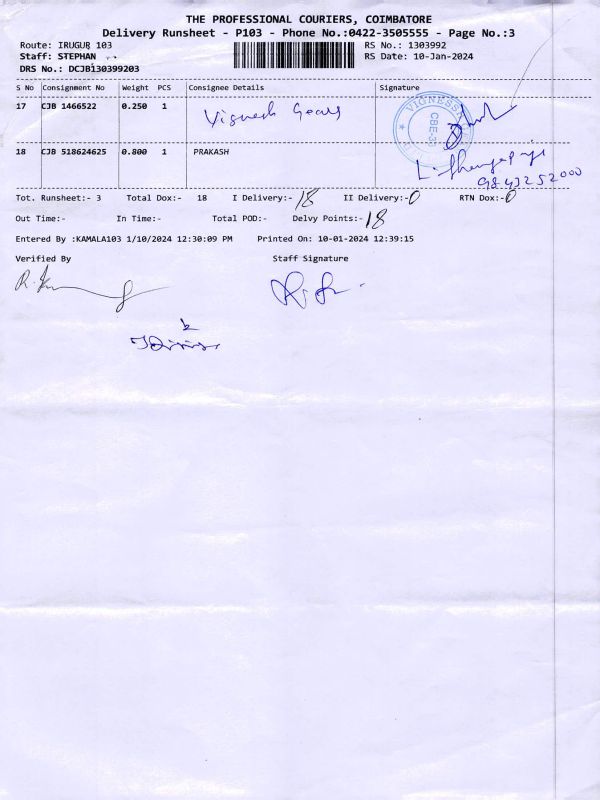 THE PROFESSIONAL COURIERS, COIMBATORE
Delivery Runsheet - P103 - Phone No.:0422-3505555 - Page No.:3
Route: IRUGUR 103 RS No.: 1303992
Staff: STEPHAN RS Date: 10-Jan-2024
DRS No.: DCJB130399203
S No Consignment No Weight PCS Consignee Details Signature
17 CJB 1466522 0.250 1 Vignesh Gears
VIGNESH
CBE-33
18 CJB 518624625 0.800 1 PRAKASH
9843252000
Tot. Runsheet:- 3 Total Dox:- 18 I Delivery:- 18 II Delivery:- 0 RTN Dox:- 0
Out Time:- In Time:- Total POD:- Delvy Points:- 18
Entered By :KAMALA103 1/10/2024 12:30:09 PM Printed On: 10-01-2024 12:39:15
Verified By Staff Signature